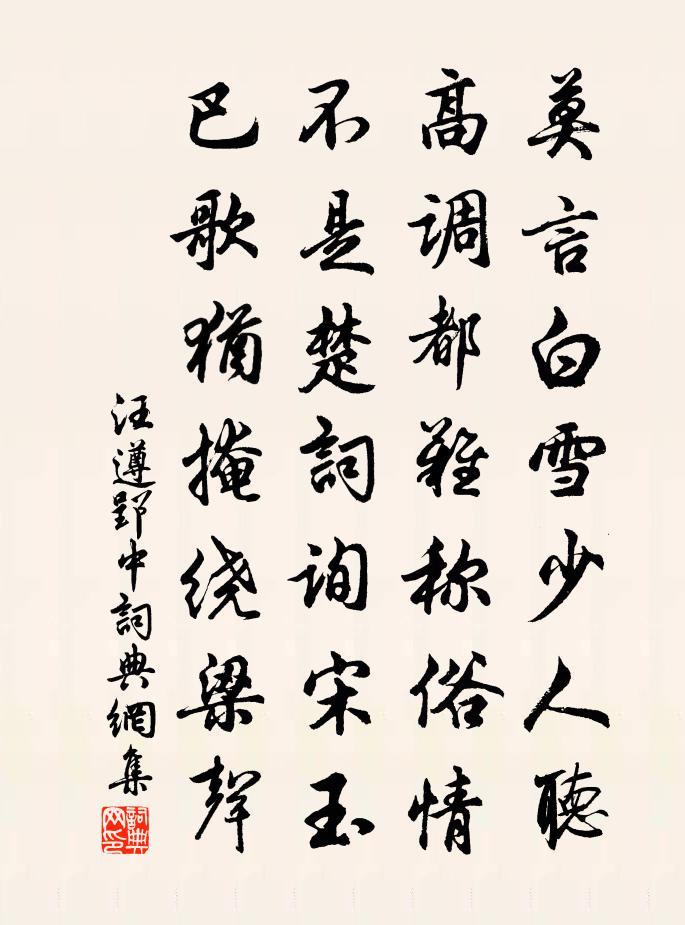 莫言白雪少人聽
高调都難称俗情
不是楚詞询宋玉
巴歌猶掩绕梁聲
汪遵郢中詞典網集
詞典网印